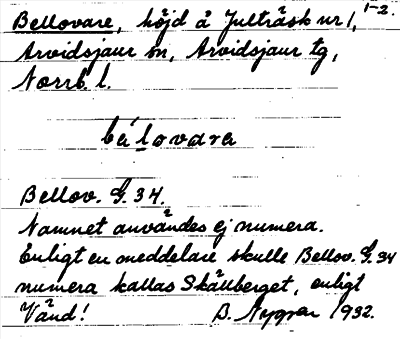 Bellovare, höjd å Julträsk nr 1, 1-2.
Arvidsjaur sn, Arvidsjaur tg,
Norrb. l.
bálovara
Bellov. G. 34.
Namnet användes ej numera.
Enligt en meddelare skulle Bellov. G. 34
numera kallas Skålberget, enligt
Vänd! B. Nygren 1932.